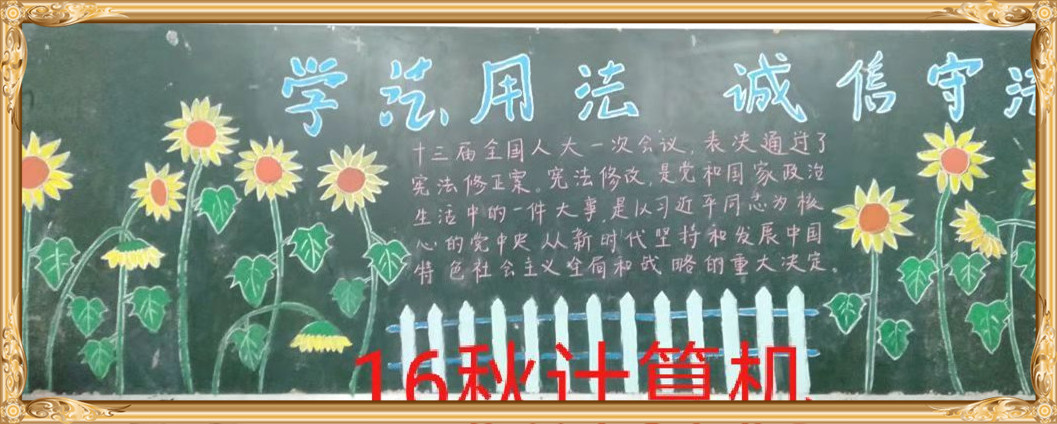 学法用法 诚信守法
十三届全国人大一次会议，表决通过了
宪法修正案。宪法修改，是党和国家政治
生活中的一件大事，是以习近平同志为核
心的党中央从新时代坚持和发展中国
特色社会主义全局和战略的重大决定。
16秋计算机